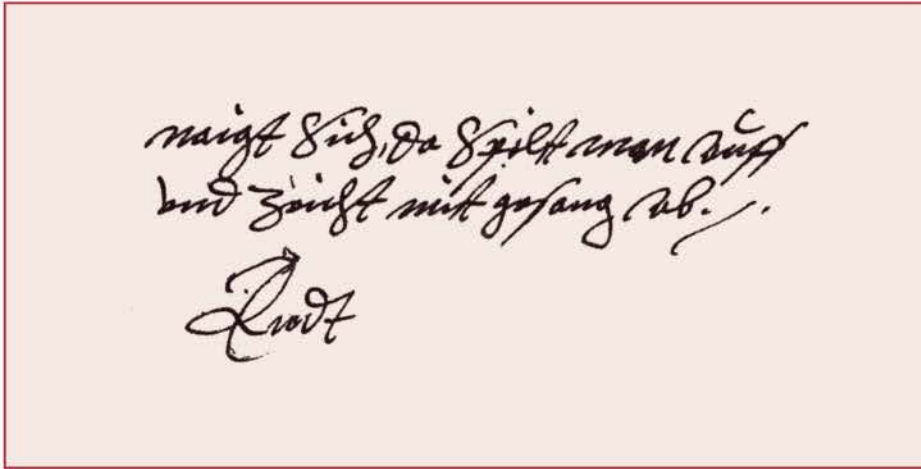 naigt Sich, da Spilt man auff
vnd Zeicht mit gesang ab./.
Endt